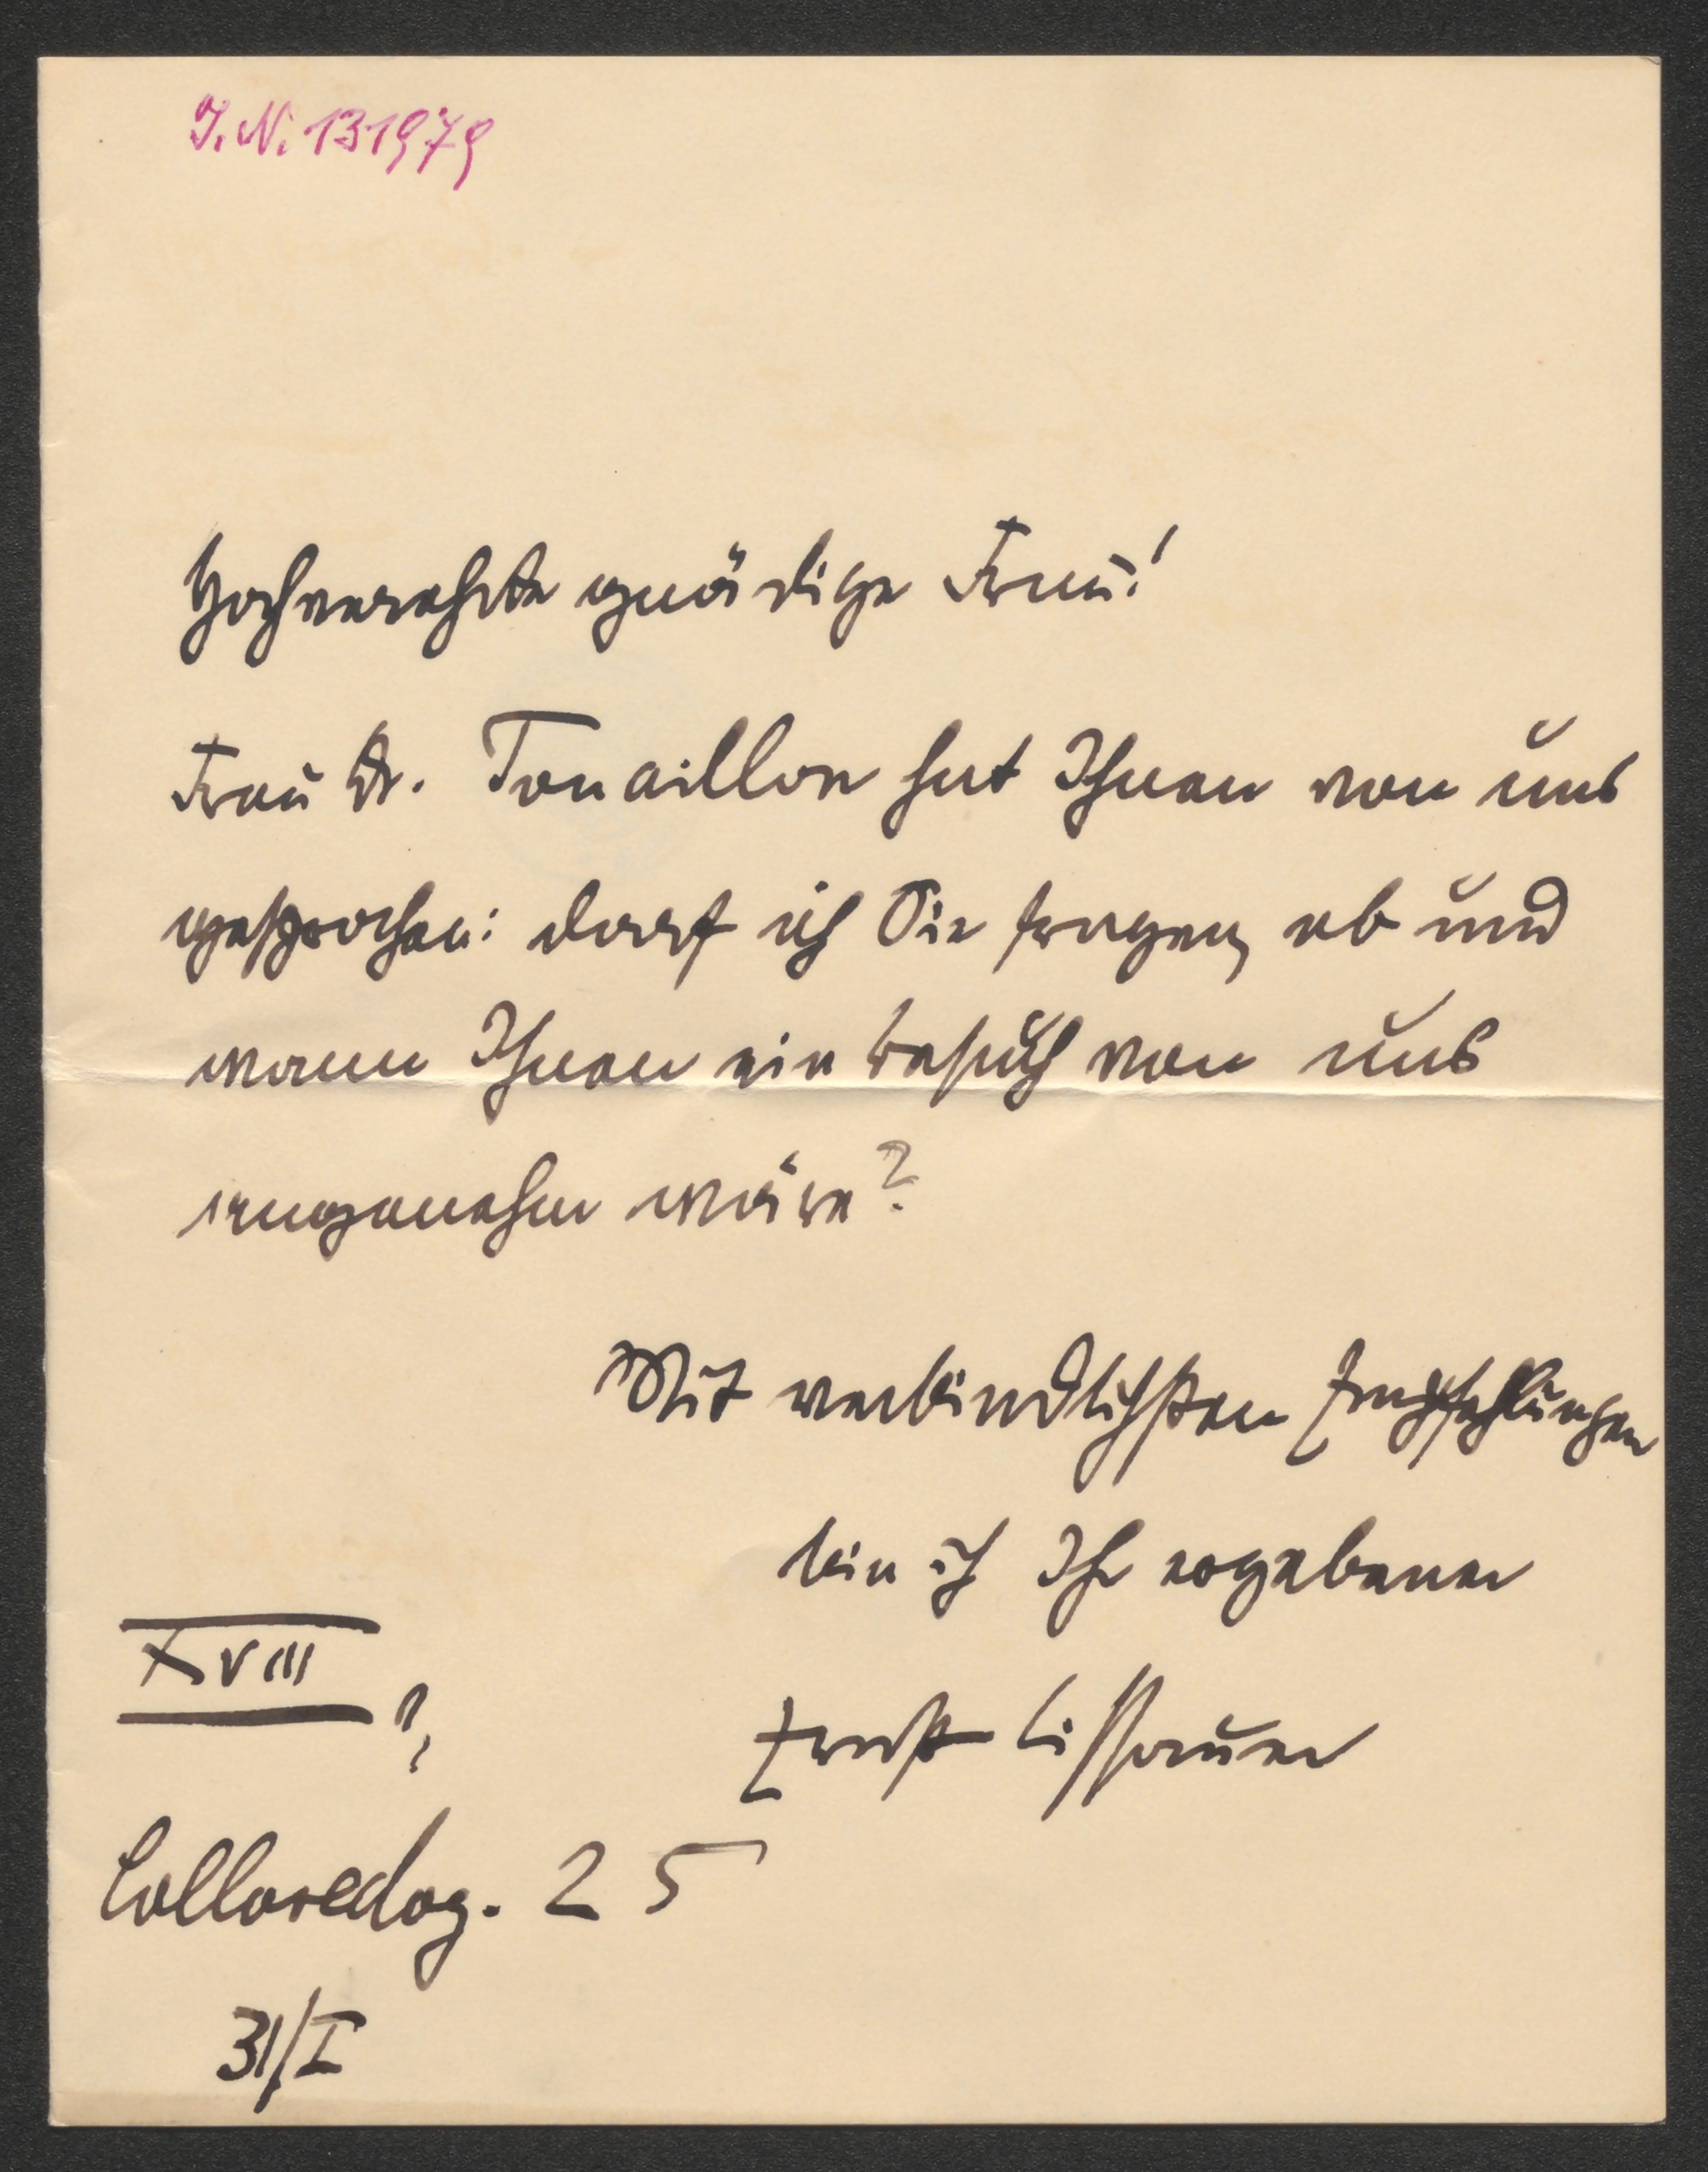 J. N. 131979
Hochverehrte gnädige Frau!
Frau Dr. Touaillon hat Ihnen von uns
gesprochen: darf ich Sie fragen, ob und
wann Ihnen ein Besuch von uns
angenehm wäre?
Mit verbindlichsten Empfehlungen
bin ich Ihr ergebener
Ernst Lissauer
XVIII
Colloredog. 25
31/I